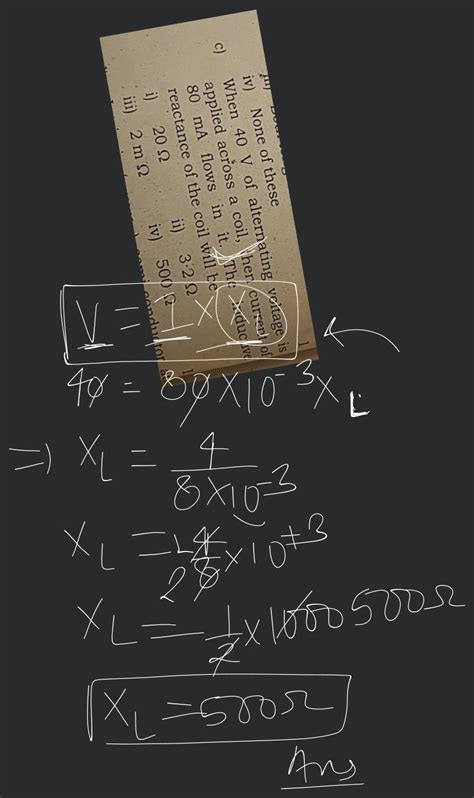 iv) None of these
c) When 40 V of alternating voltage is
applied across a coil, then current of
80 mA flows in it. The inductive
reactance of the coil will be
i) 20 Ω ii) 3·2 Ω
iii) 2 m Ω iv) 500 Ω
V = I × X
40 = 80 × 10⁻³ X_L
⇒ X_L = 4 / 8×10⁻³
X_L = 1 4 / 2 8 × 10⁺³
X_L = 1/2 × 1000 500Ω
X_L = 500Ω
Ans